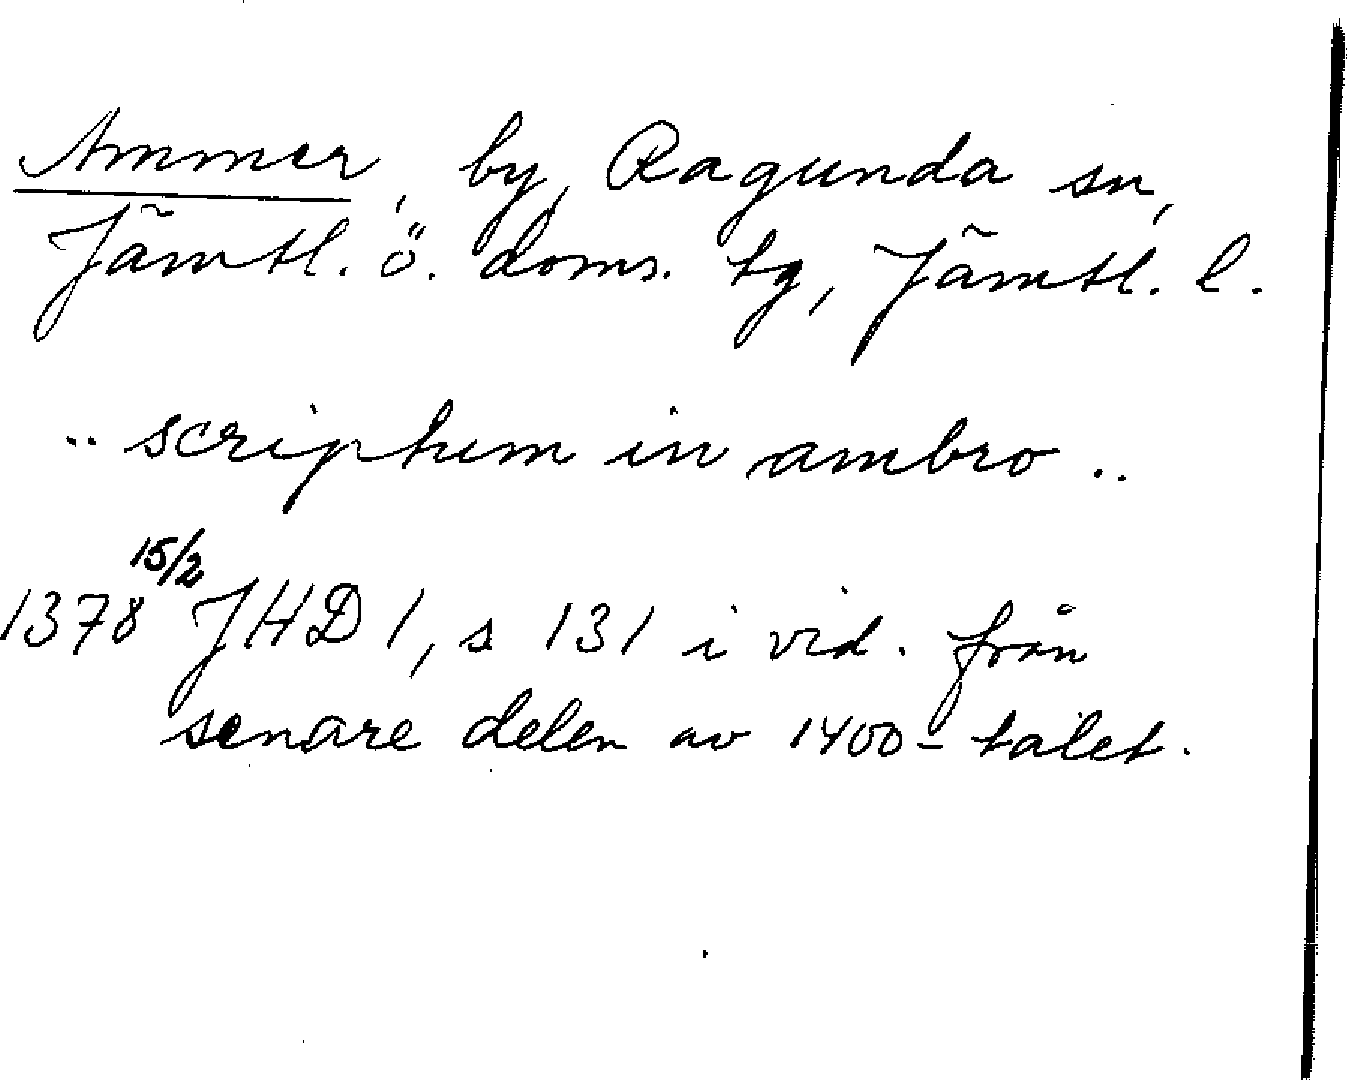 Ammer, by, Ragunda sn,
Jämtl. ö. doms. tg, Jämtl. l.
.. scriptum in ambro ..
1378 15/2 JHD 1, s 131 i vid. från
senare delen av 1400-talet.